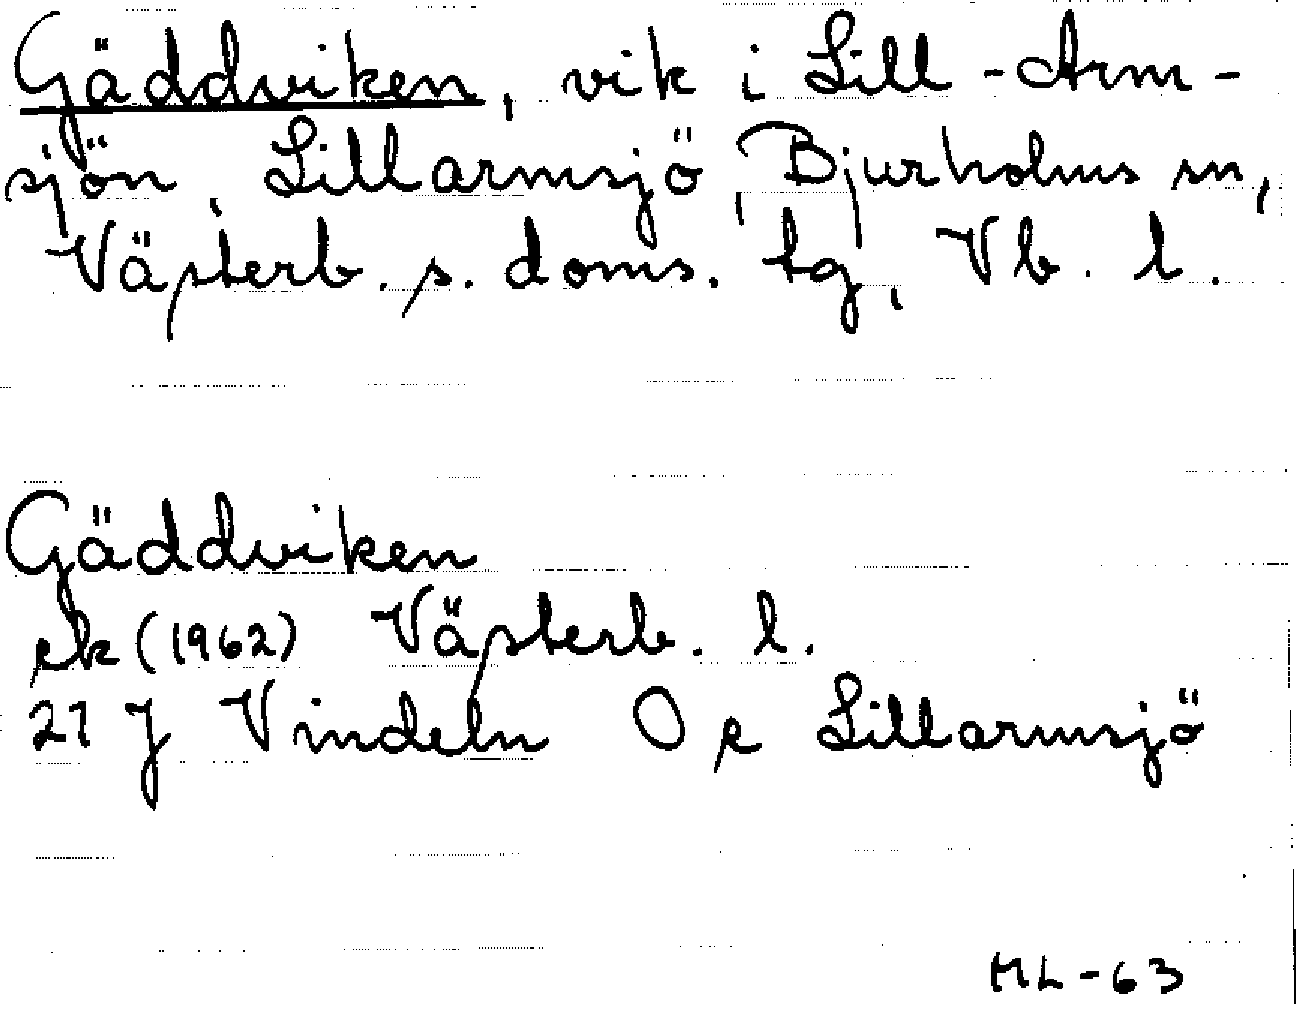 Gäddviken, vik i Lill-Arm-
sjön, Lillarmsjö, Bjurholms sn,
Västerb. s. doms. tg, Vb. l.
Gäddviken
ek (1962) Västerb. l.
21 J Vindeln O e Lillarmsjö
ML-63